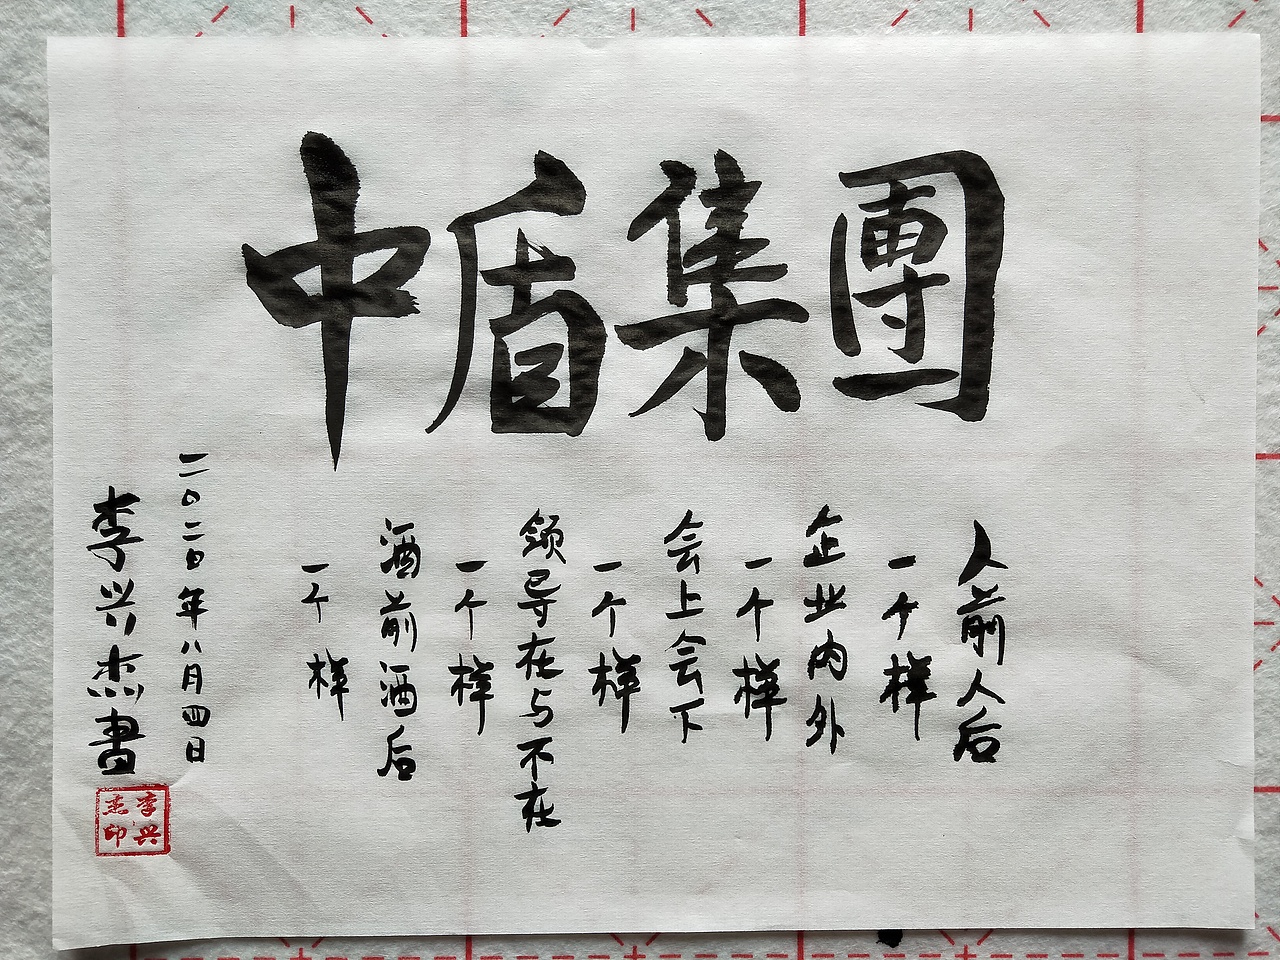 中盾集團
人前人后
一个样
企业内外
一个样
会上会下
一个样
领导在与不在
一个样
酒前酒后
一个样
二〇二〇年八月四日
李兴杰書
李兴
杰印